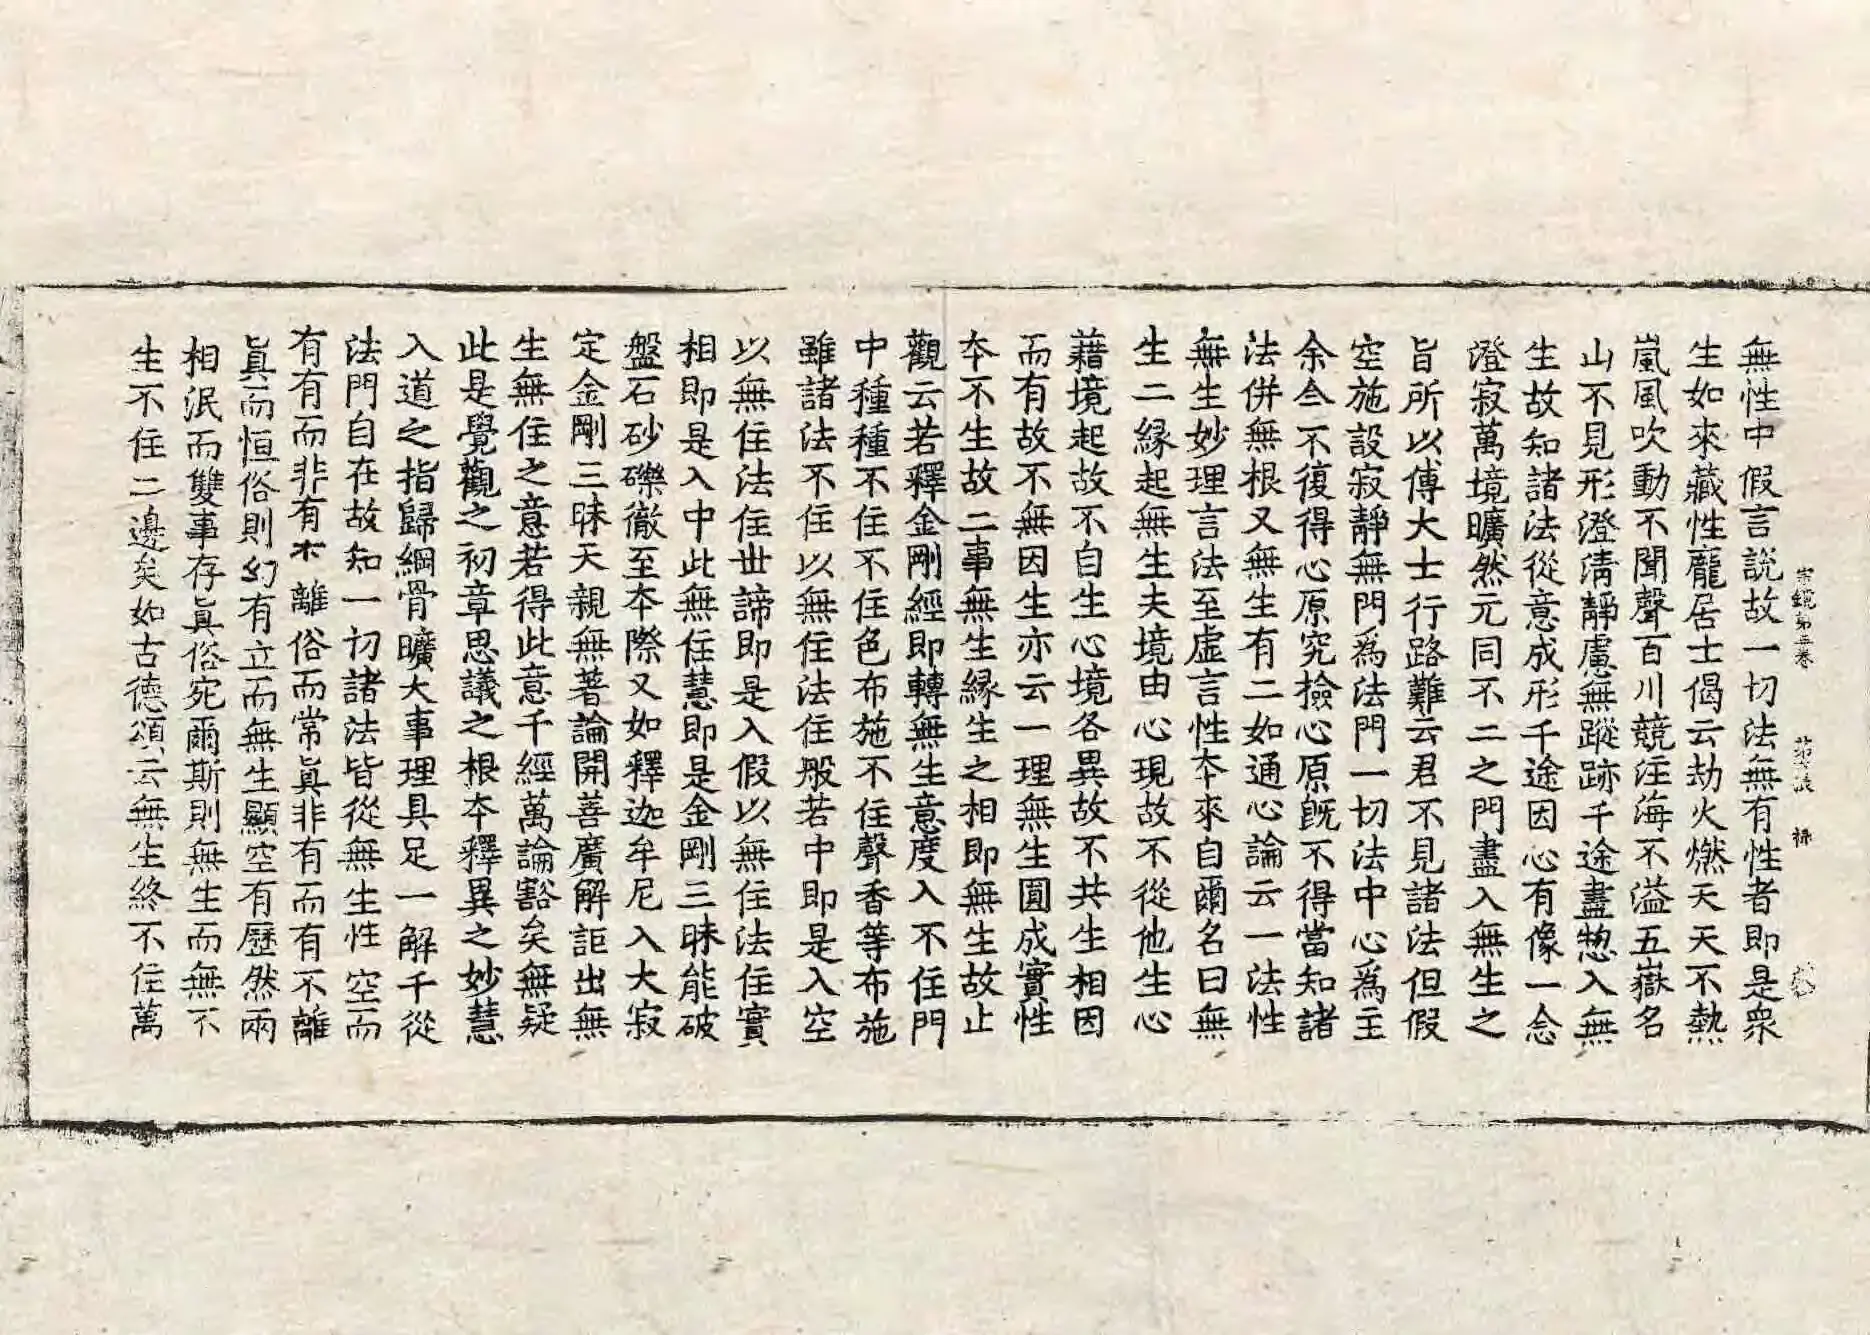 宗鏡第五卷 第 張 禄
無性中假言說故一切法無有性者即是衆
生如來藏性龐居士偈云劫火燃天天不熱
嵐風吹動不聞聲百川競注海不溢五嶽名
山不見形澄清靜慮無蹤跡千途盡惣入無
生故知諸法從意成形千途因心有像一念
澄寂萬境曠然元同不二之門盡入無生之
旨所以傅大士行路難云君不見諸法但假
空施設寂靜無門爲法門一切法中心爲主
余今不復得心原究撿心原旣不得當知諸
法併無根又無生有二如通心論云一法性
無生妙理言法至虛言性夲來自爾名曰無
生二緣起無生夫境由心現故不從他生心
藉境起故不自生心境各異故不共生相因
而有故不無因生亦云一理無生圓成實性
夲不生故二事無生緣生之相即無生故止
觀云若釋金剛經即轉無生意度入不住門
中種種不住不住色布施不住聲香等布施
雖諸法不住以無住法住般若中即是入空
以無住法住丗諦即是入假以無住法住實
相即是入中此無住慧即是金剛三昧能破
盤石砂礫徹至夲際又如釋迦牟尼入大寂
定金剛三昧天親無著論開善廣解詎出無
生無住之意若得此意千經萬論豁矣無疑
此是覺觀之初章思議之根夲釋異之妙慧
入道之指歸綱骨曠大事理具足一解千從
法門自在故知一切諸法皆從無生性空而
有有而非有不離俗而常眞非有而有不離
眞而恒俗則幻有立而無生顯空有歷然兩
相泯而雙事存眞俗宛爾斯則無生而無不
生不住二邊矣如古德頌云無生終不住萬